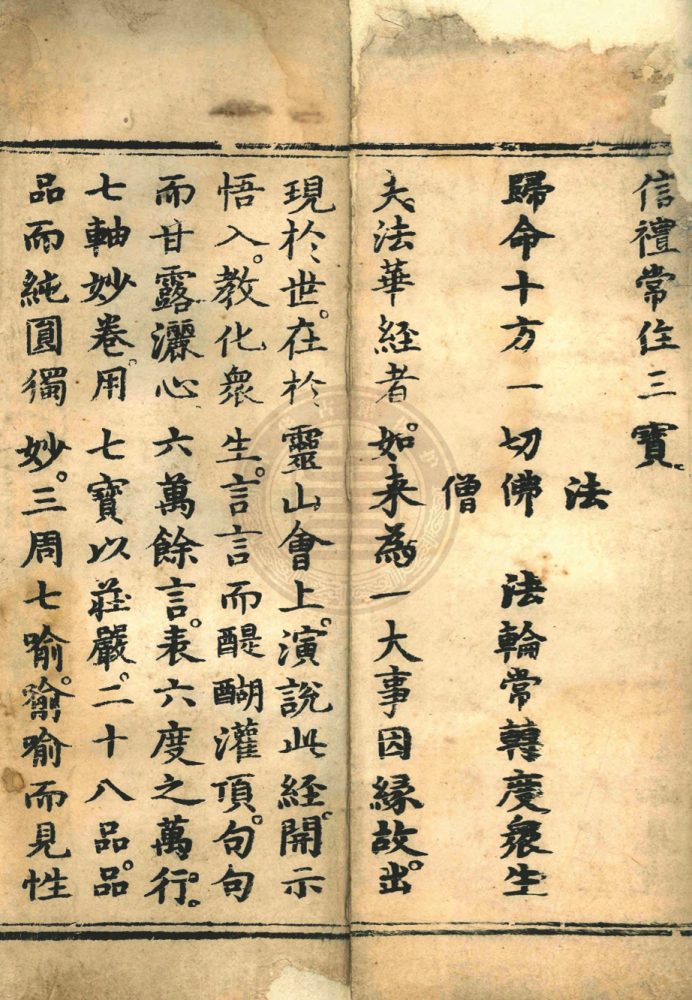 信禮常住三寶。
歸命十方一切佛法僧 法輪常轉度衆生
夫法華経者如来為一大事因緣故。出
現於世。在於靈山會上。演說此経。開示
悟入。教化衆生。言言而醍醐灌頂。句句
而甘露灑心六萬餘言。表六度之萬行。
七軸妙卷。用七寶以莊嚴。二十八品。品
品而純圓獨妙。三周七喻。喻喻而見性